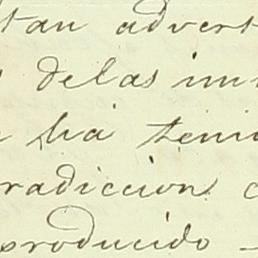 tan advert
s delas inn
ha teni
radiccion c
producido